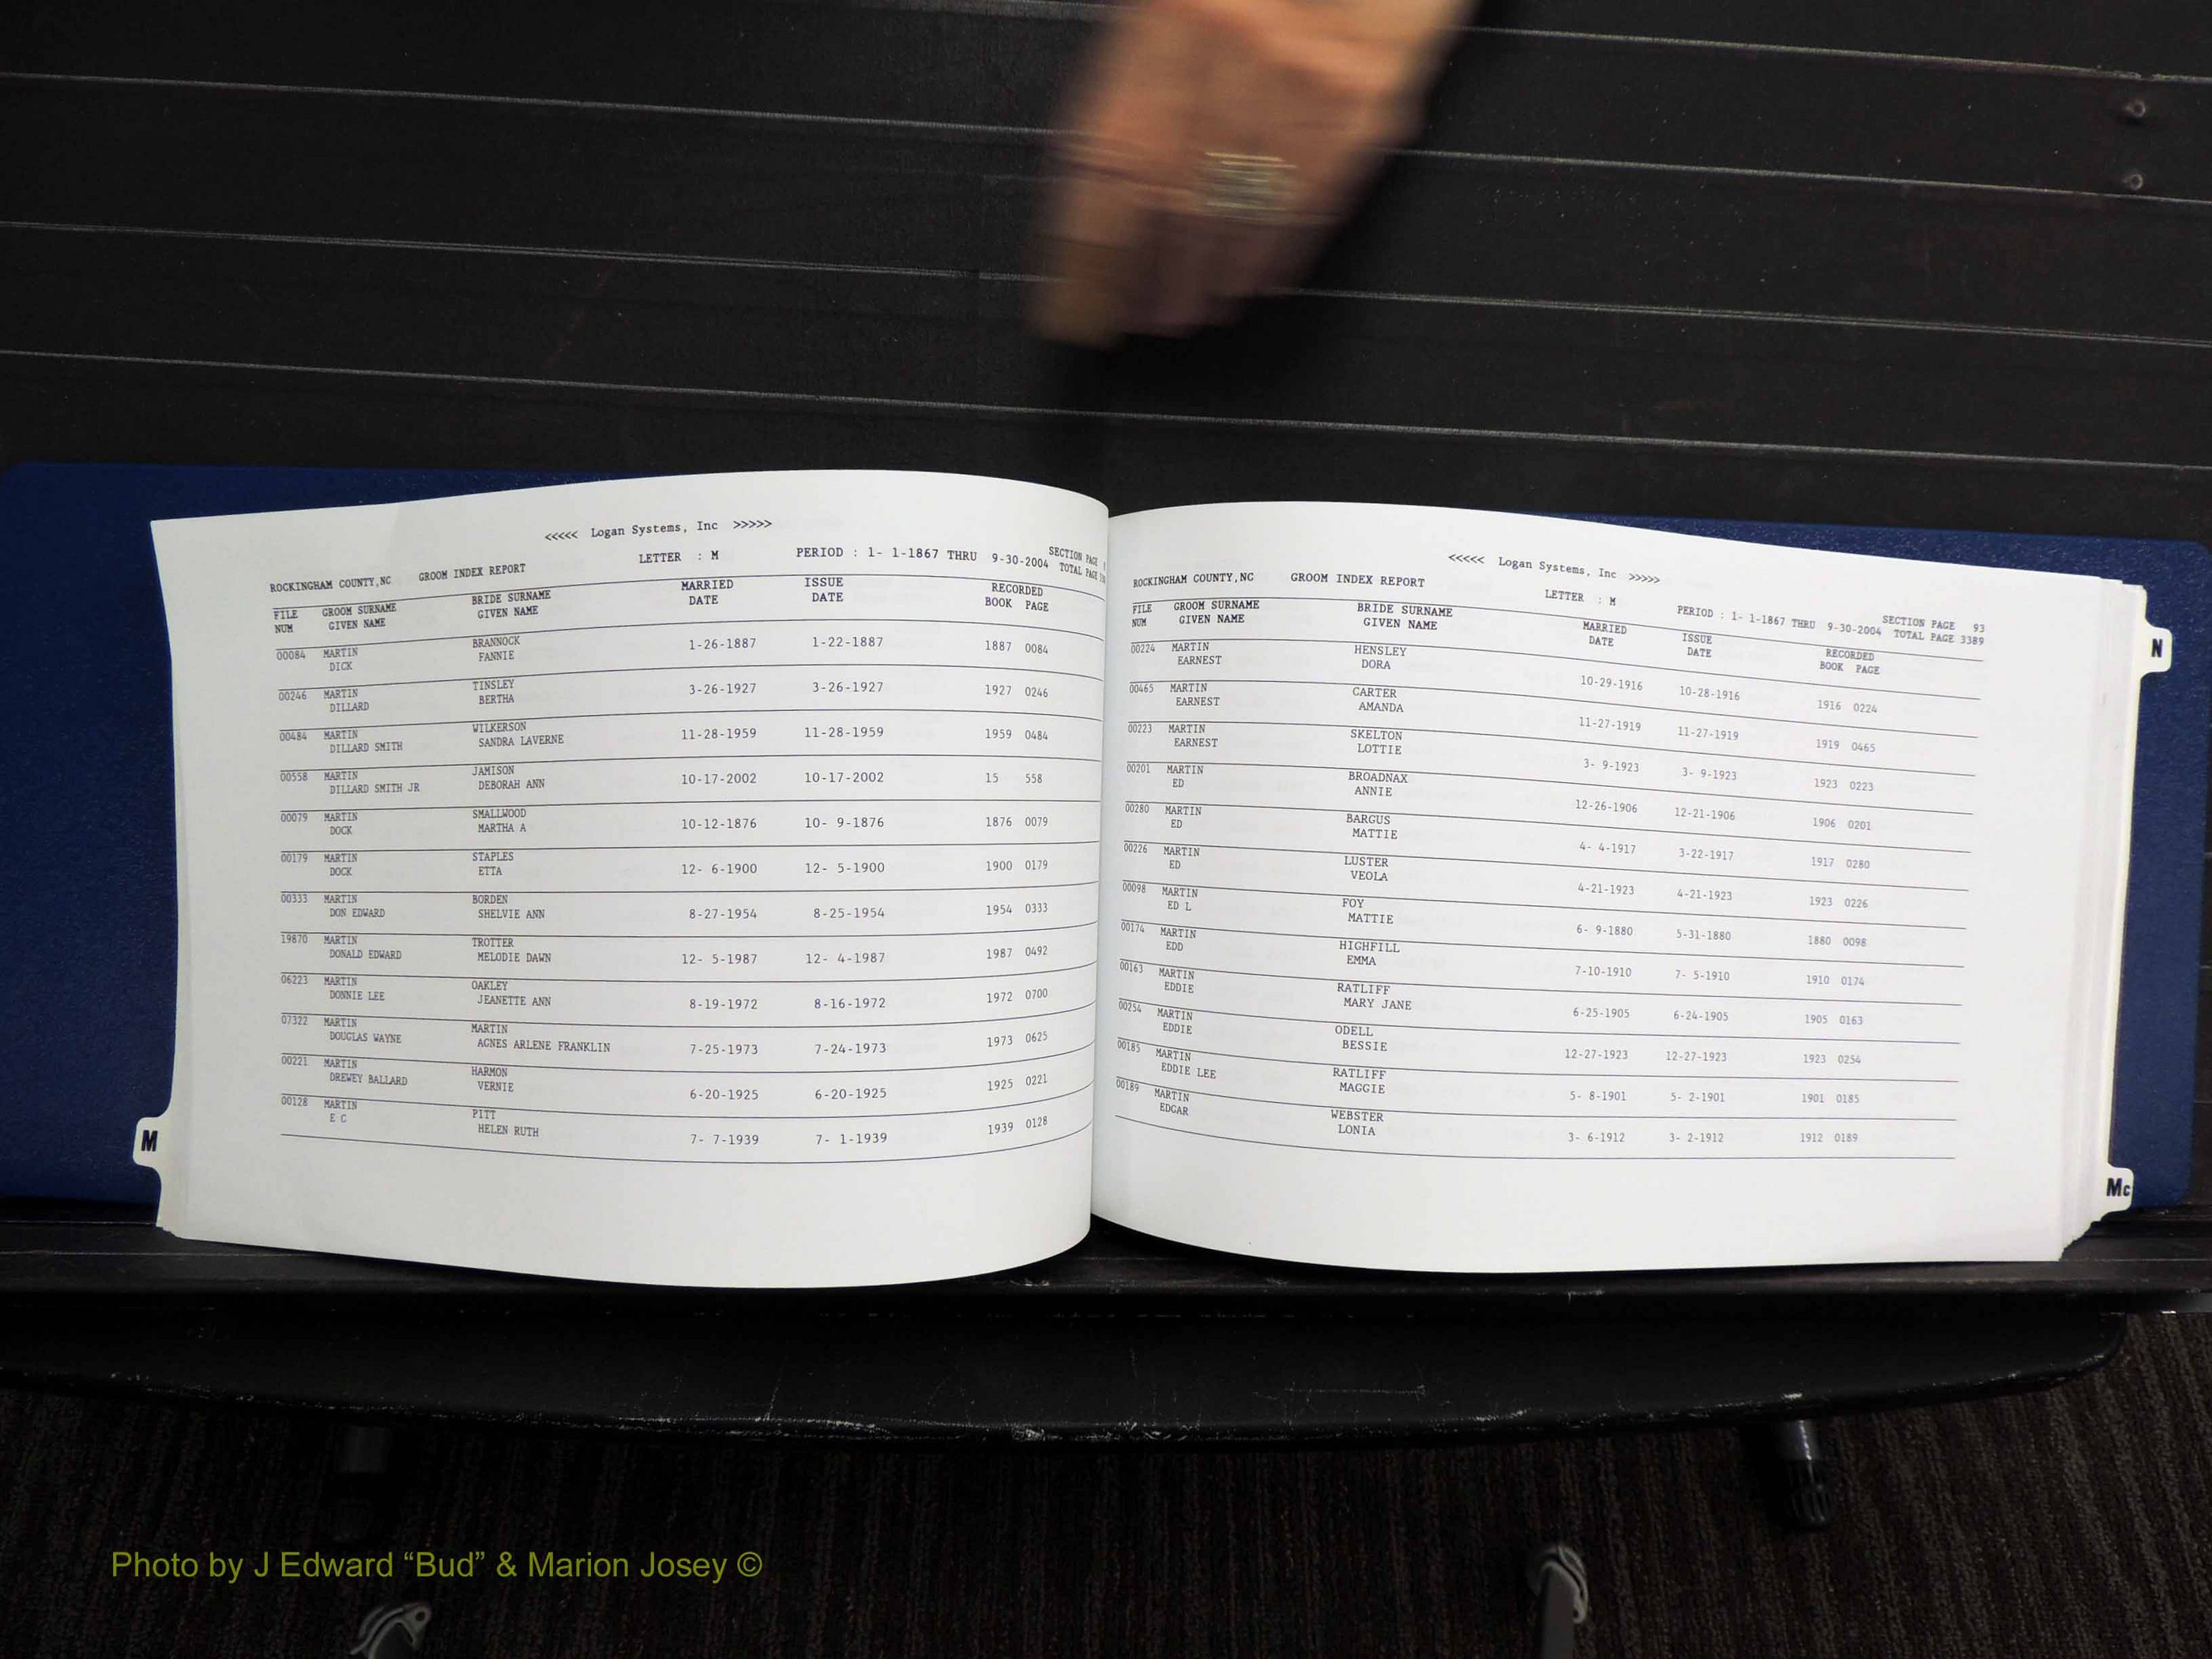 <<<<< Logan Systems, Inc >>>>>
ROCKINGHAM COUNTY,NC GROOM INDEX REPORT LETTER : M PERIOD : 1- 1-1867 THRU 9-30-2004 SECTION PAGE
TOTAL PAGE
FILE GROOM SURNAME BRIDE SURNAME MARRIED ISSUE RECORDED
NUM GIVEN NAME GIVEN NAME DATE DATE BOOK PAGE
00084 MARTIN BRANNOCK 1-26-1887 1-22-1887 1887 0084
DICK FANNIE
00246 MARTIN TINSLEY 3-26-1927 3-26-1927 1927 0246
DILLARD BERTHA
00484 MARTIN WILKERSON 11-28-1959 11-28-1959 1959 0484
DILLARD SMITH SANDRA LAVERNE
00558 MARTIN JAMISON 10-17-2002 10-17-2002 15 558
DILLARD SMITH JR DEBORAH ANN
00079 MARTIN SMALLWOOD 10-12-1876 10- 9-1876 1876 0079
DOCK MARTHA A
00179 MARTIN STAPLES 12- 6-1900 12- 5-1900 1900 0179
DOCK ETTA
00333 MARTIN BORDEN 8-27-1954 8-25-1954 1954 0333
DON EDWARD SHELVIE ANN
19870 MARTIN TROTTER 12- 5-1987 12- 4-1987 1987 0492
DONALD EDWARD MELODIE DAWN
06223 MARTIN OAKLEY 8-19-1972 8-16-1972 1972 0700
DONNIE LEE JEANETTE ANN
07322 MARTIN MARTIN 7-25-1973 7-24-1973 1973 0625
DOUGLAS WAYNE AGNES ARLENE FRANKLIN
00221 MARTIN HARMON 6-20-1925 6-20-1925 1925 0221
DREWEY BALLARD VERNIE
00128 MARTIN PITT 7- 7-1939 7- 1-1939 1939 0128
E C HELEN RUTH
M
<<<<< Logan Systems, Inc >>>>>
ROCKINGHAM COUNTY,NC GROOM INDEX REPORT LETTER : M PERIOD : 1- 1-1867 THRU 9-30-2004 SECTION PAGE 93
TOTAL PAGE 3389
FILE GROOM SURNAME BRIDE SURNAME MARRIED ISSUE RECORDED
NUM GIVEN NAME GIVEN NAME DATE DATE BOOK PAGE
00224 MARTIN HENSLEY 10-29-1916 10-28-1916 1916 0224
EARNEST DORA
00465 MARTIN CARTER 11-27-1919 11-27-1919 1919 0465
EARNEST AMANDA
00223 MARTIN SKELTON 3- 9-1923 3- 9-1923 1923 0223
EARNEST LOTTIE
00201 MARTIN BROADNAX 12-26-1906 12-21-1906 1906 0201
ED ANNIE
00280 MARTIN BARGUS 4- 4-1917 3-22-1917 1917 0280
ED MATTIE
00226 MARTIN LUSTER 4-21-1923 4-21-1923 1923 0226
ED VEOLA
00098 MARTIN FOY 6- 9-1880 5-31-1880 1880 0098
ED L MATTIE
00174 MARTIN HIGHFILL 7-10-1910 7- 5-1910 1910 0174
EDD EMMA
00163 MARTIN RATLIFF 6-25-1905 6-24-1905 1905 0163
EDDIE MARY JANE
00254 MARTIN ODELL 12-27-1923 12-27-1923 1923 0254
EDDIE BESSIE
00185 MARTIN RATLIFF 5- 8-1901 5- 2-1901 1901 0185
EDDIE LEE MAGGIE
00189 MARTIN WEBSTER 3- 6-1912 3- 2-1912 1912 0189
EDGAR LONIA
N
Mc
Photo by J Edward “Bud” & Marion Josey ©